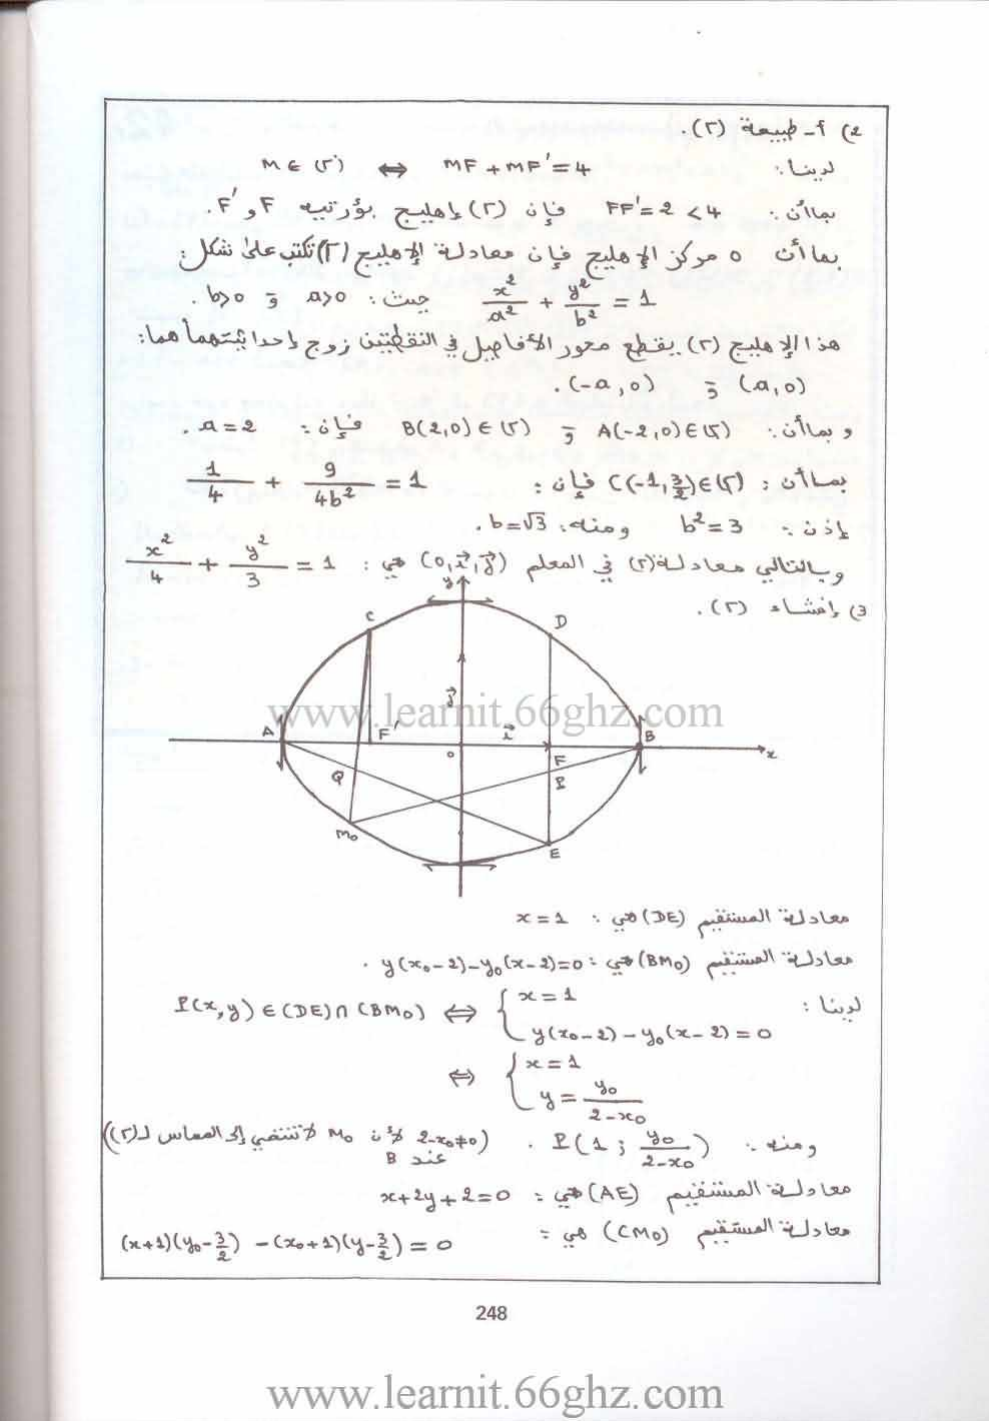 2) أ- طبيعة (Γ).
لدينا: M ∈ (Γ) ⇔ MF + MF' = 4
بما أن: FF' = 2 < 4 فإن (Γ) إهليج بؤرتيه F و F'.
بما أن O مركز الإهليج فإن معادلة الإهليج (Γ) تكتب على شكل:
x²/a² + y²/b² = 1 حيث: a>0 و b>0.
هذا الإهليج (Γ) يقطع محور الأفاصيل في النقطتين زوج إحداثيتهما هما:
(a,0) و (-a,0).
و بما أن: A(-2,0)∈(Γ) و B(2,0)∈(Γ) فإن: a=2.
بما أن: C(-1,3/2)∈(Γ) فإن: 1/4 + 9/4b² = 1
إذن: b²=3 ومنه: b=√3.
وبالتالي معادلة (Γ) في المعلم (O,i⃗,j⃗) هي: x²/4 + y²/3 = 1
3) إنشاء (Γ).
y
C D
j⃗
A F' O i⃗ F B x
Q I
M₀ E
www.learnit.66ghz.com
معادلة المستقيم (DE) هي: x=1
معادلة المستقيم (BM₀) هي: y(x₀-2)-y₀(x-2)=0.
لدينا: I(x,y)∈(DE)∩(BM₀) ⇔ { x=1
y(x₀-2)-y₀(x-2)=0
⇔ { x=1
y = y₀/2-x₀
ومنه: I(1; y₀/2-x₀). (2-x₀≠0 لأن M₀ لا تنتمي إلى المماس لـ(Γ) عند B)
معادلة المستقيم (AE) هي: x+2y+2=0
معادلة المستقيم (CM₀) هي: (x+1)(y₀-3/2)-(x₀+1)(y-3/2)=0
248
www.learnit.66ghz.com